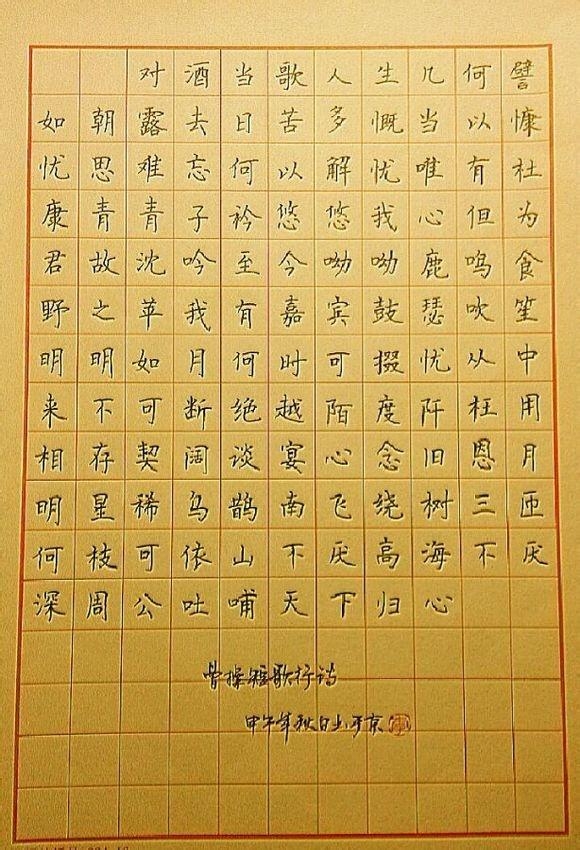 对酒当歌人生几何譬
如朝露去日苦多慨当以慷
忧思难忘何以解忧唯有杜
康青青子衿悠悠我心但为
君故沈吟至今呦呦鹿鸣食
野之苹我有嘉宾鼓瑟吹笙
明明如月何时可掇忧从中
来不可断绝越陌度阡枉用
相存契阔谈宴心念旧恩月
明星稀乌鹊南飞绕树三匝
何枝可依山不厌高海不厌
深周公吐哺天下归心
曹操短歌行诗
甲午年秋日书于京